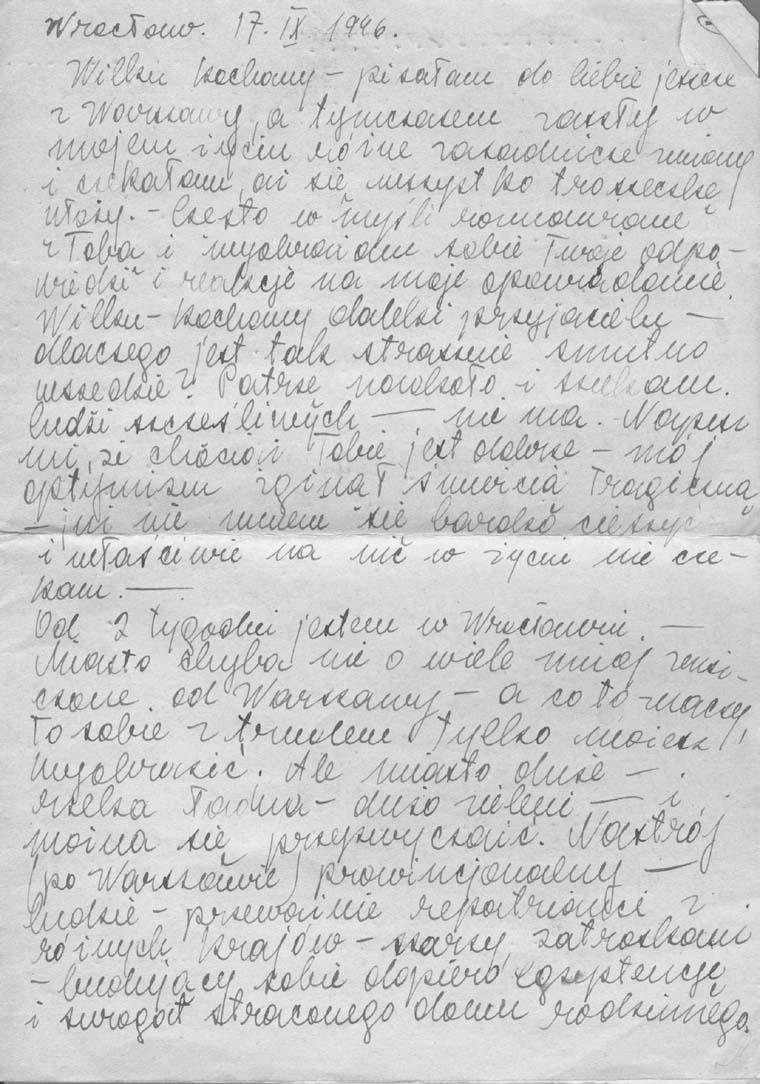 Wrocław. 17. IX. 1946.
Wilku kochany – pisałam do Ciebie jeszcze
z Warszawy, a tymczasem zaszły w
mojem życiu różne zasadnicze zmiany
i czekałam, aż się wszystko troszeczkę
ułoży. – Często w myśli rozmawiam
z Tobą i wyobrażam sobie Twoje odpo-
wiedzi i reakcje na moje opowiadanie.
Wilku – kochany daleki przyjacielu –
dlaczego jest tak strasznie smutno
wszędzie? Patrzę naokoło i szukam
ludzi szczęśliwych – nie ma. Napisz
mi, że chociaż Tobie jest dobrze – mój
optymizm zginął śmiercią tragiczną
– już nie umiem się bardzo cieszyć
i właściwie na nic w życiu nie cze-
kam. –
Od 2 tygodni jestem w Wrocławiu. –
Miasto chyba nie o wiele mniej znisz-
czone od Warszawy – a co to znaczy,
to sobie z trudem tylko możesz
wyobrazić. Ale miasto duże –
rzeka ładna – dużo zieleni – i
można się przyzwyczaić. Nastrój
(po Warszawie) prowincjonalny –
ludzie – przeważnie repatrianci z
różnych krajów – szarzy, zatroskani
– budujący sobie dopiero egzystencję
i surogat straconego domu rodzinnego.